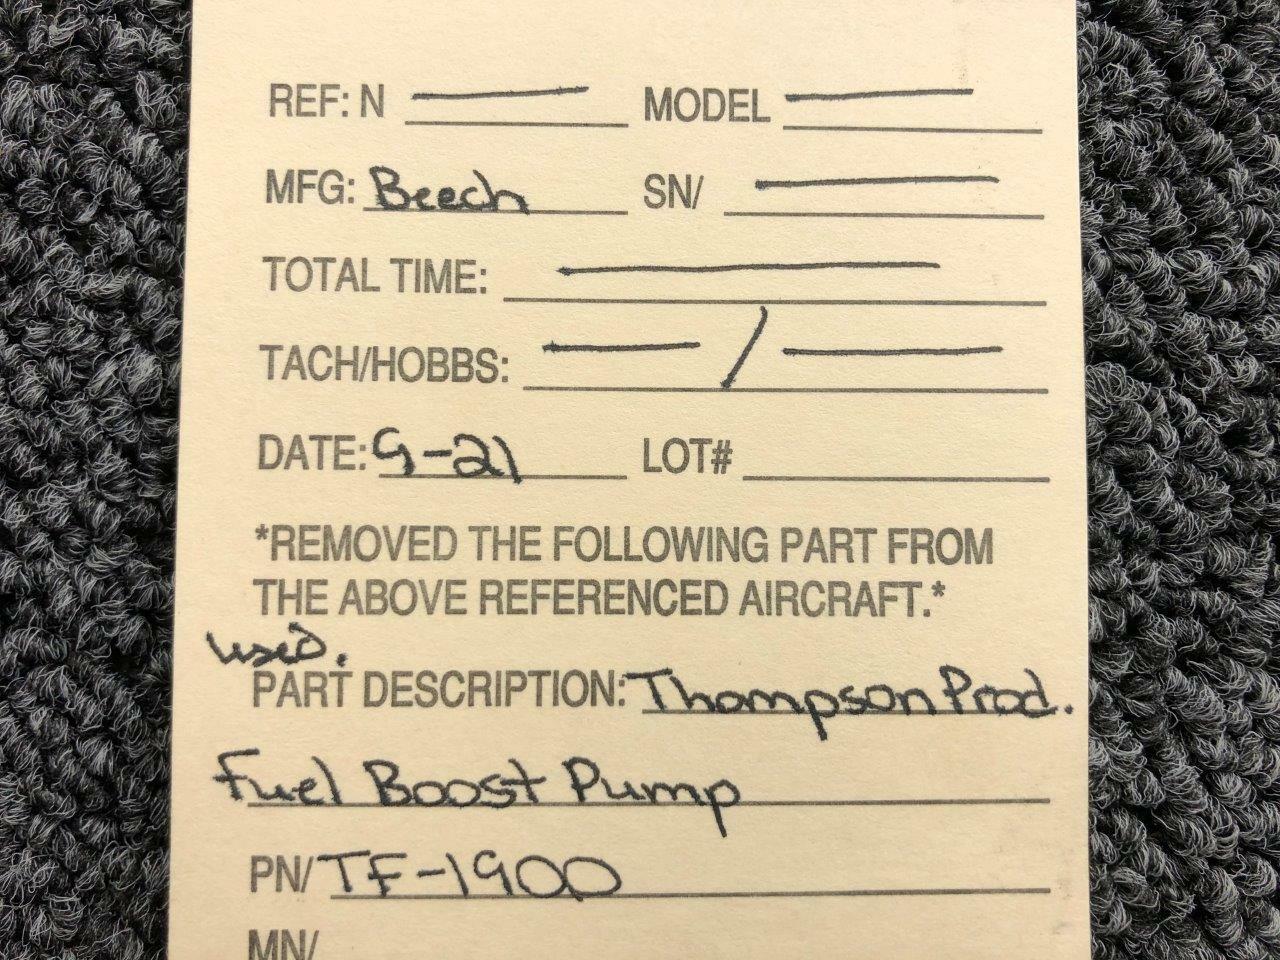 REF: N — MODEL —
MFG: Beech SN/ —
TOTAL TIME: —
TACH/HOBBS: — / —
DATE: 9-21 LOT#
*REMOVED THE FOLLOWING PART FROM
THE ABOVE REFERENCED AIRCRAFT.*
used.
PART DESCRIPTION: Thompson Prod.
Fuel Boost Pump
PN/ TF-1900
MN/